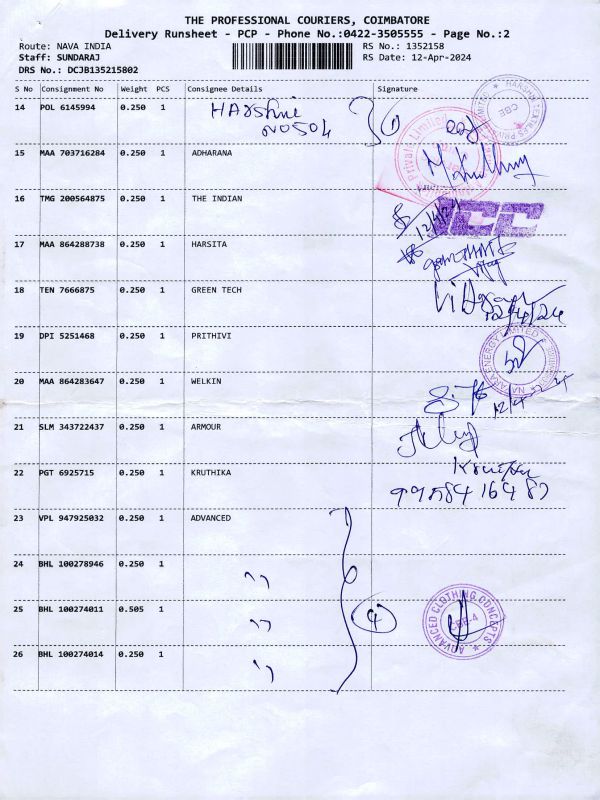 THE PROFESSIONAL COURIERS, COIMBATORE
Delivery Runsheet - PCP - Phone No.:0422-3505555 - Page No.:2
Route: NAVA INDIA RS No.: 1352158
Staff: SUNDARAJ RS Date: 12-Apr-2024
DRS No.: DCJB135215802
S No Consignment No Weight PCS Consignee Details Signature
14 POL 6145994 0.250 1 Harshni
NO504
15 MAA 703716284 0.250 1 ADHARANA
16 TMG 200564875 0.250 1 THE INDIAN
12/4/24
17 MAA 864288738 0.250 1 HARSITA
18 TEN 7666875 0.250 1 GREEN TECH
12/4/24
19 DPI 5251468 0.250 1 PRITHIVI
20 MAA 864283647 0.250 1 WELKIN
21 SLM 343722437 0.250 1 ARMOUR
22 PGT 6925715 0.250 1 KRUTHIKA
23 VPL 947925032 0.250 1 ADVANCED
24 BHL 100278946 0.250 1 "
25 BHL 100274011 0.505 1 " 4
ADVANCED CLOTHING CONCEPTS
CBE-4
26 BHL 100274014 0.250 1 "